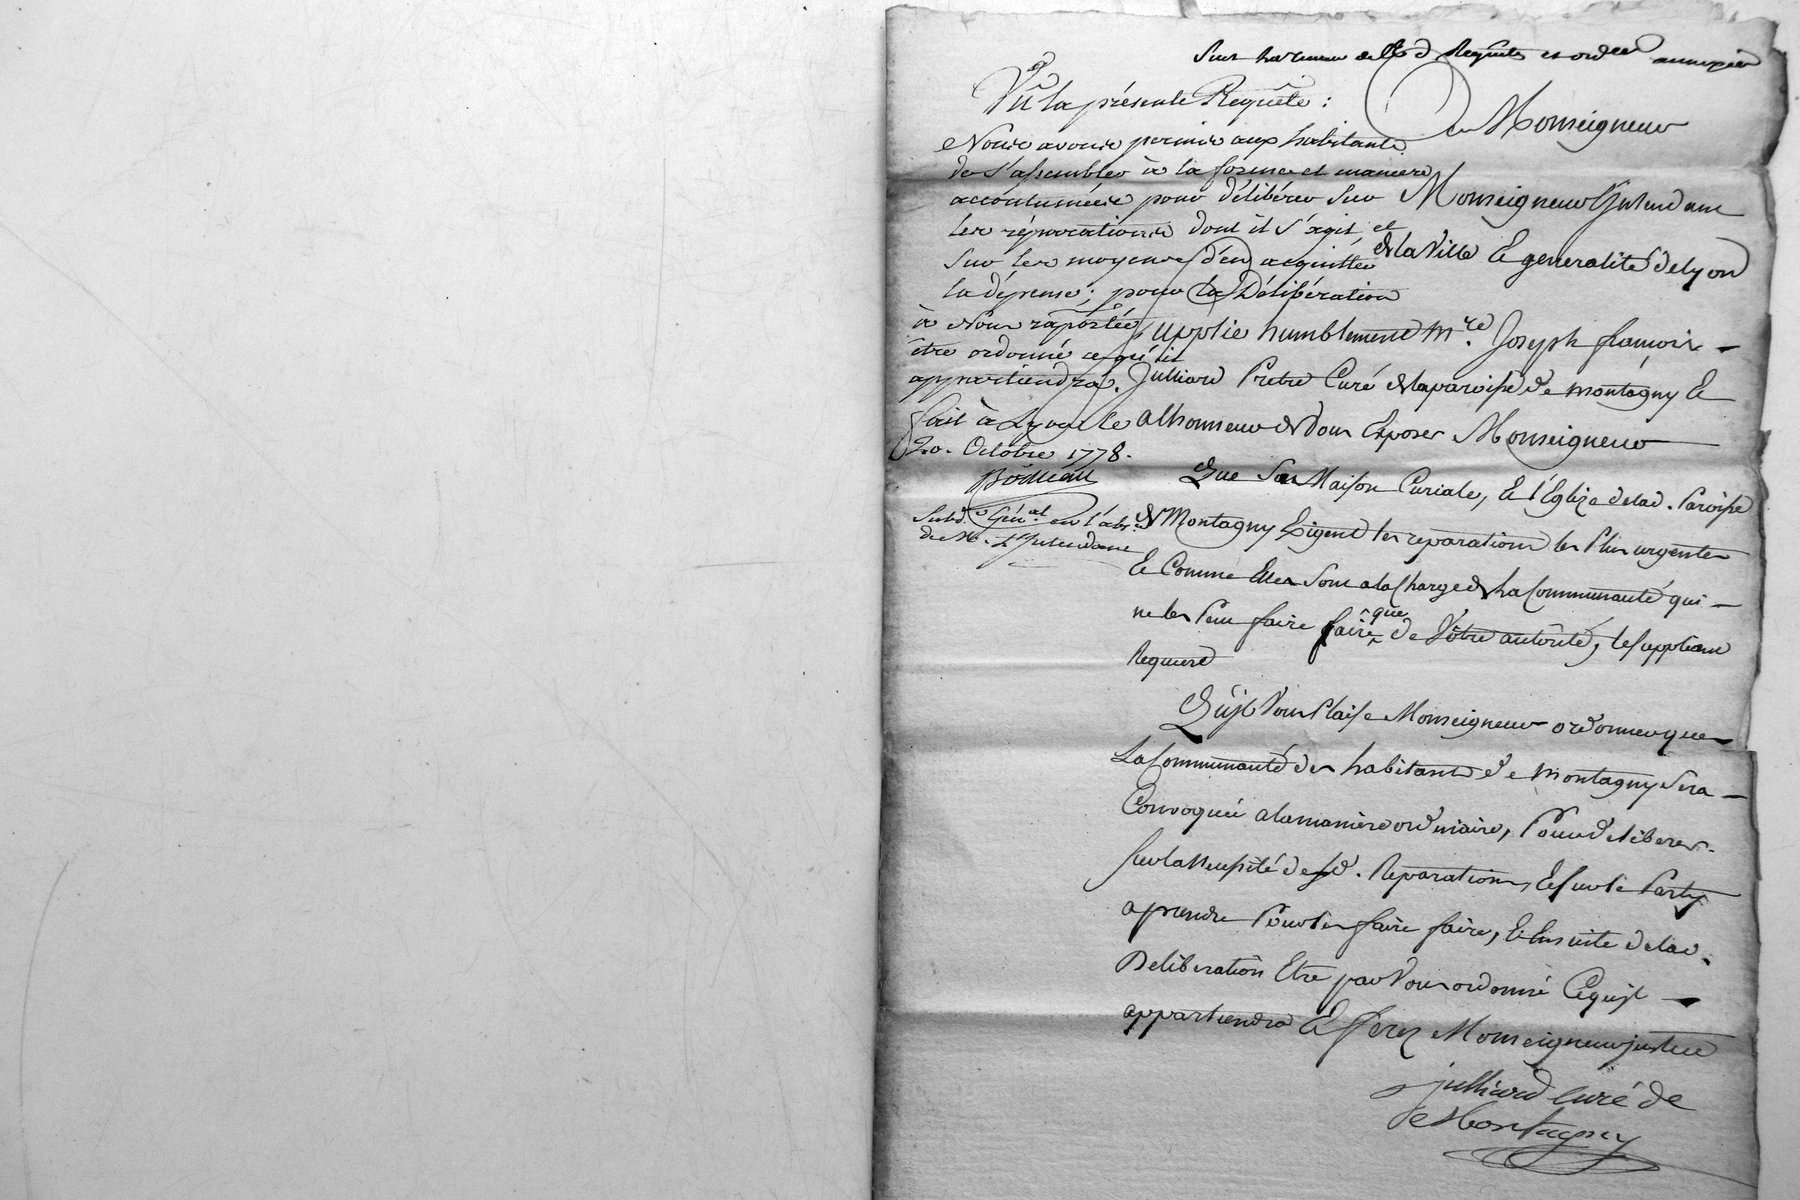 Suit la teneur desd. Requete et ordce annexées
A Monseigneur
Monseigneur L'Intendant
de la Ville Et generalité de Lyon
Vû la présente Requête :
Nous avons permis aux habitants
de s'assembler à la forme et manière
accoutumées pour délibérer sur
les réparations dont il s'agit, et
sur les moyens d'en acquitter
la dépense ; pour la Délibération
à Nous raportée,
être ordonné ce qu'il
appartiendra.
fait à Lyon le
20. Octobre 1778.
Subd. Génal. en l'abs.
de M. L'Intendant
Supplie humblement Mre. Joseph
Julliard Prêtre Curé de la paroisse de Montagny Et
a lhonneur de Vous Exposer Monseigneur
Que Sa Maison Curiale, Et l'Eglize de lad. Paroisse
de Montagny Exigent les reparations les Plus urgentes
Et Comme Elles Sont a la Charge de la Communauté qui
ne les Peut faire faire que de Votre autorité, le suppliant
Requiert
Qu'il Vous Plaise Monseigneur ordonner que
La Communauté des habitants de Montagny Sera
Convoquée a la maniere ordinaire, Pour deliberer
sur la necessité desd. Reparations, Et sur le Party
a prendre Pour les faire faire, Et Ensuite de lad.
Deliberation Etre par Vous ordonné Ce qu'il
appartiendra Et ferez Monseigneur justice
julliard curé de
Montagny